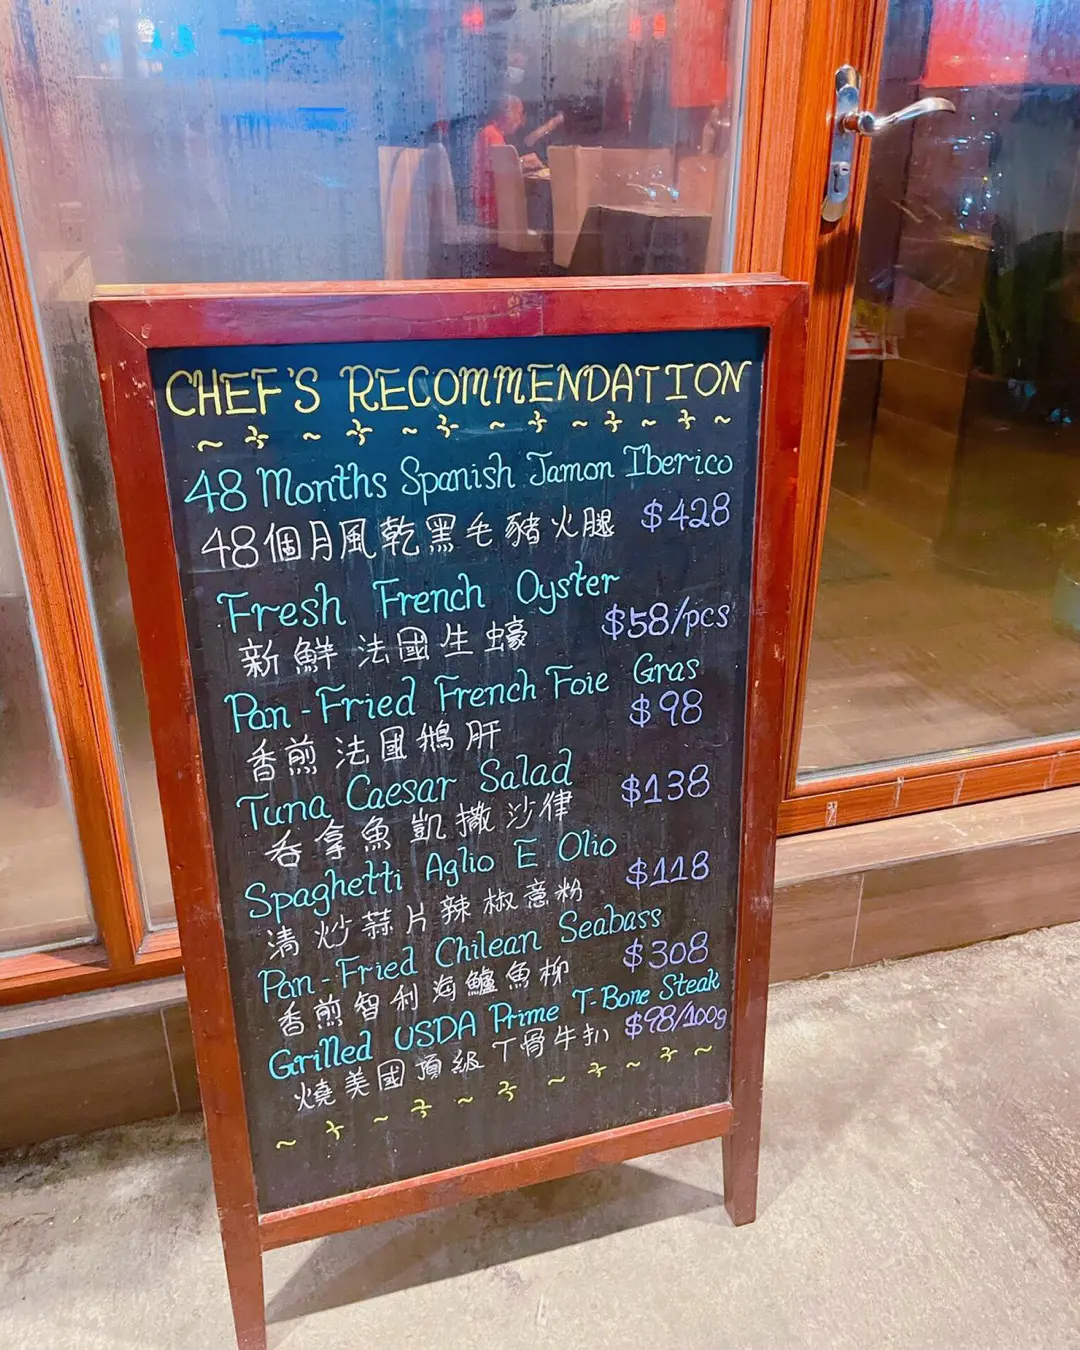 CHEF'S RECOMMENDATION
48 Months Spanish Jamon Iberico
48個月風乾黑毛豬火腿 $428
Fresh French Oyster
新鮮法國生蠔 $58/pcs
Pan-Fried French Foie Gras
香煎法國鵝肝 $98
Tuna Caesar Salad
吞拿魚凱撒沙律 $138
Spaghetti Aglio E Olio
清炒蒜片辣椒意粉 $118
Pan-Fried Chilean Seabass
香煎智利海鱸魚柳 $308
Grilled USDA Prime T-Bone Steak
燒美國頂級T骨牛扒 $98/100g